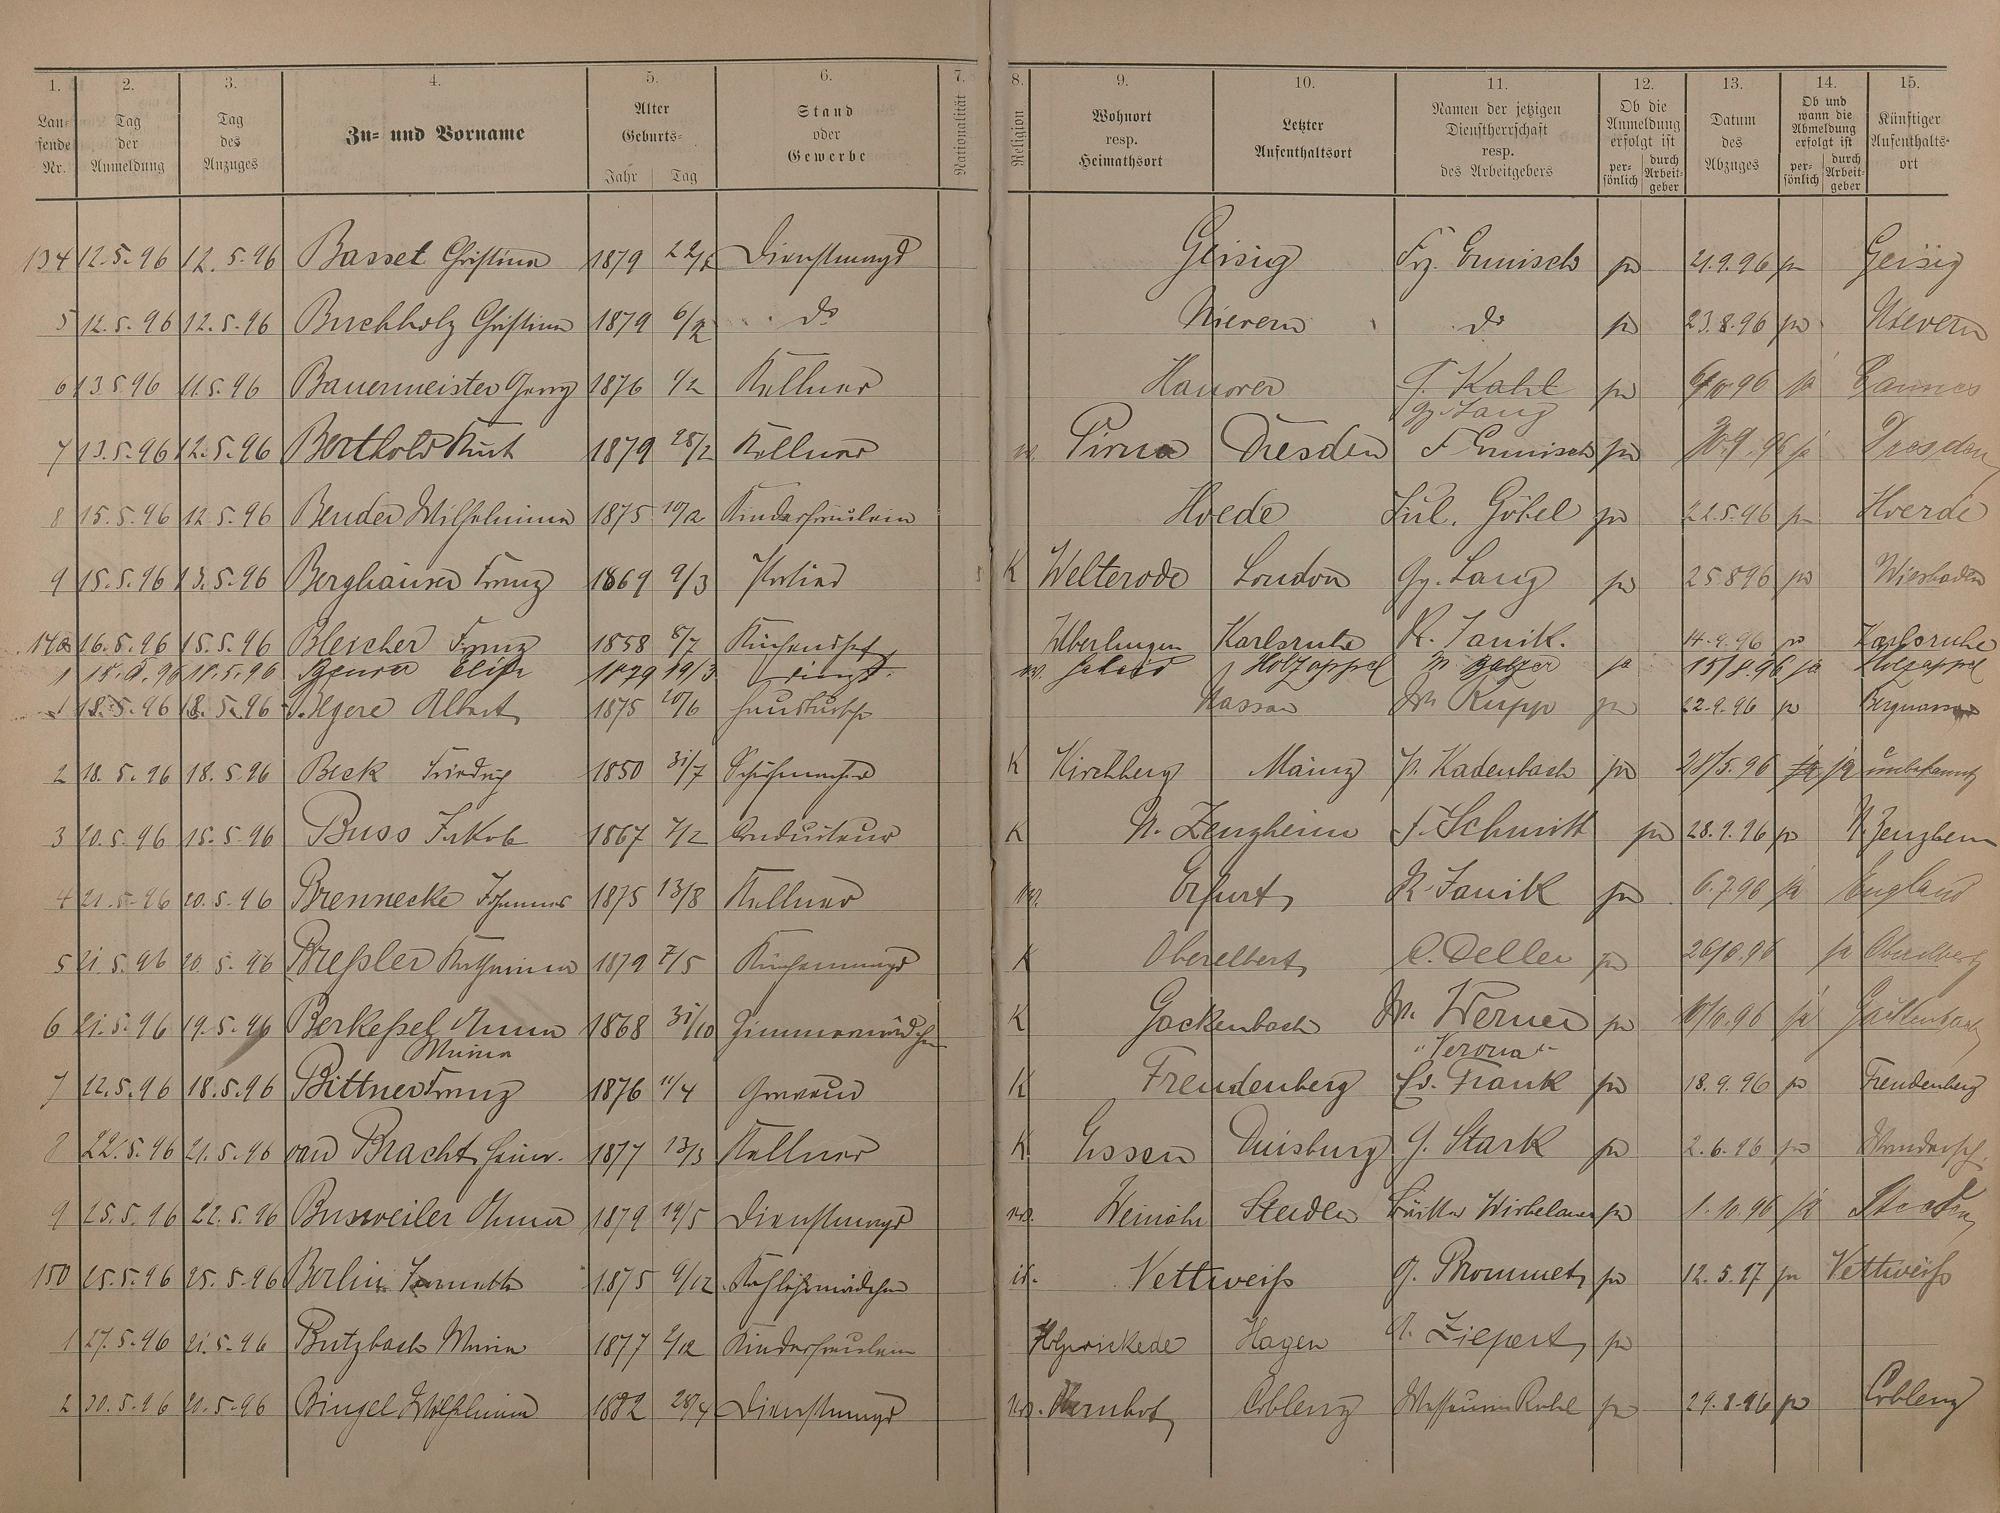 1. 2. 3. 4. 5. 6. 7. 8. 9. 10. 11. 12. 13. 14. 15.
Laufende Nr. Tag der Anmeldung Tag des Anzuges Zu- und Vorname Alter Geburts- Jahr Tag Stand oder Gewerbe Nationalität Religion Wohnort resp. Heimathsort Letzter Aufenthaltsort Namen der jetzigen Dienstherrschaft resp. des Arbeitgebers Ob die Anmeldung erfolgt ist persönlich durch Arbeitgeber Datum des Abzuges Ob und wann die Abmeldung erfolgt ist persönlich durch Arbeitgeber Künftiger Aufenthaltsort
134 12.5.96 12.5.96 Basset Christina 1879 Dienstmagd Geisig 21.9.96 Geisig
5 12.5.96 12.5.96 Buchholz Christina 1879 6/2 do Nievern do ja 23.8.96 ja Nievern
6 13.5.96 11.5.96 Bauermeister Georg 1876 1/2 Kellner Hanover F. Kahl ja Cannes
Gg. Lang
7 13.5.96 12.5.96 Berthold Kurt 1879 28/2 Kellner Pirna Dresden ja Dresden
8 15.5.96 12.5.96 Bender Wilhelmina 1875 10/2 Kinderfräulein Hoerde Jul. Göbel ja 22.5.96 ja Hoerde
9 15.5.96 13.5.96 Berghäuser Franz 1869 9/3 Portier K Welterode London Gg. Lang ja 25.8.96 ja Wiesbaden
140 16.5.96 15.5.96 Bleicher Franz 1858 8/7 Küchenchef Uberlingen Karlsruhe R. Janik. 14.9.96 ja Karlsruhe
1 18.5.96 19/3 Holzappel ja ja Holzappel
1 18.5.96 18.5.96 Albert 1875 20/6 Hausbursche Nassau Rupp ja 22.9.96 ja
2 18.5.96 18.5.96 Beck Friedrich 1850 31/7 Schuhmacher K Kirchberg Mainz P. Kadenbach ja 28/5.96 ja ja unbekannt
3 20.5.96 15.5.96 Buss Jakob 1867 7/2 Conducteur K N. Zeuzheim F. Schmitt ja 28.9.96 ja N. Zeuzheim
4 21.5.96 20.5.96 Brennecke Johannes 1875 13/8 Kellner Erfurt R. Janik ja 6.7.96 ja England
5 21.5.96 20.5.96 Breßler Katharina 1879 7/5 Küchenmagd K Oberelbert C. Deller ja ja Oberelbert
6 21.5.96 19.5.96 Berkeßel Anna 1868 31/10 Zimmermädchen K Gackenbach W. Werner ja ja Gackenbach
Maria "Verona"
7 22.5.96 18.5.96 Bittner Franz 1876 11/4 K Freudenberg Ed. Frank ja 18.9.96 ja Freudenberg
8 22.5.96 21.5.96 van Bracht Heinr. 1877 13/3 Kellner K Essen Duisburg G. Stark ja 2.6.96 ja
9 25.5.96 22.5.96 Busweiler Anna 1879 19/5 Dienstmagd Weinähr Steeden Wirbelauer ja 1.10.96 ja Steeden
150 25.5.96 25.5.96 Berlin 1875 9/12 is. Vettweiß G. Brommet ja 12.5.97 ja Vettweiß
1 27.5.96 21.5.96 Butzbach Maria 1877 Kinderfräulein Holzwickede Hagen ja
2 30.5.96 21.5.96 Bingel Wilhelmina 1882 28/4 Dienstmagd Coblenz ja 29.8.96 ja Coblenz